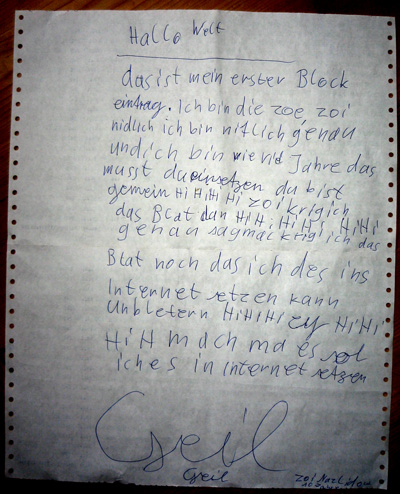 Hallo Welt
das ist mein erster Block
eintrag. Ich bin die zoe, zoi
nidlich ich bin nitlich genau
und ich bin wie vil Jahre das
musst du einsetzen du bist
gemein HiHiHi Hi zoi krigich
das Blat dan HiHi, HiHi, HiHi
genau sagmackrig ich das
Blat noch das ich des ins
Internet setzen kann
Unbletern HiHiHi ey HiHi
HiH mach ma es sol
iches in internet setzen
Geil
Geil
zoi